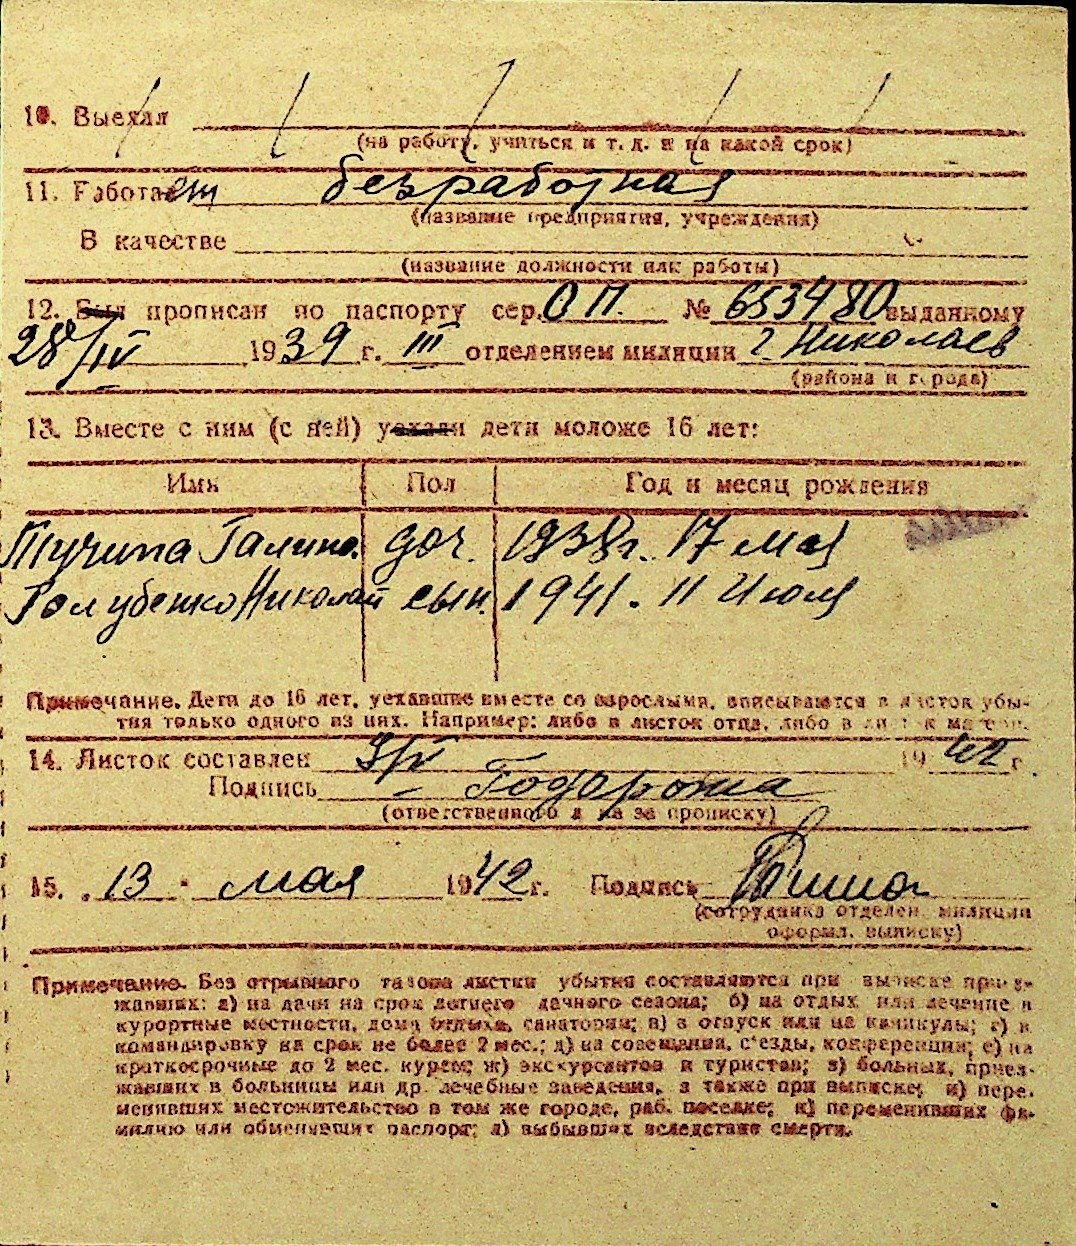 10. Выехал
(на работу, учиться и т. д. и на какой срок)
11. Работает безработная
(название предприятия, учреждения)
В качестве
(название должности или работы)
12. Был прописан по паспорту сер. ОП. № 653480 выданному
28/IV 1939 г. III отделением милиции г. Николаев
(района и города)
13. Вместе с ним (с ней) уехали дети моложе 16 лет:
Имя Пол Год и месяц рождения
Галина доч. 1938 г. 17 мая
Голубенко Николай сын. 1941. 11 Июля
Примечание. Дети до 16 лет, уехавшие вместе со взрослыми, вписываются в листок убы-
тия только одного из них. Например: либо в листок отца, либо в листок матери.
14. Листок составлен 9/V 1942 г.
Подпись
(ответственного лица за прописку)
15. 13 мая 1942 г. Подпись
(сотрудника отделен. милиции
оформл. выписку)
Примечание. Без отрывного талона листки убытия составляются при выписке приез-
жавших: а) на дачи на срок летнего дачного сезона; б) на отдых или лечение в
курортные местности, дома отдыха, санатории; в) в отпуск или на каникулы; г) в
командировку на срок не более 2 мес.; д) на совещания, с'езды, конференции; е) на
краткосрочные до 2 мес. курсы; ж) экскурсантов и туристов; з) больных, приез-
жавших в больницы или др. лечебные заведения, а также при выписке; и) пере-
менивших местожительство в том же городе, раб. поселке; к) переменивших фа-
милию или обменявших паспорт; л) выбывших вследствие смерти.